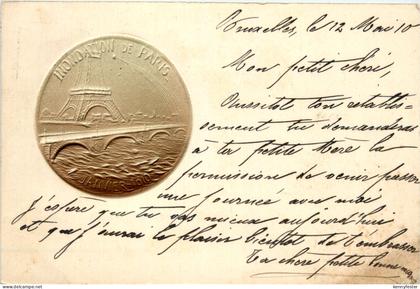 INONDATION DE PARIS
JANVIER 1910
Bruxelles, le 12 Mai 10
Mon petit chéri,
Aussitôt ton rétablis-
sement tu demanderas
à ta petite Mère la
permission de venir passer
une journée avec moi
J'espère que tu vas mieux aujourd'hui
et que j'aurai le plaisir bientôt de t'embrasser
Ta chère petite